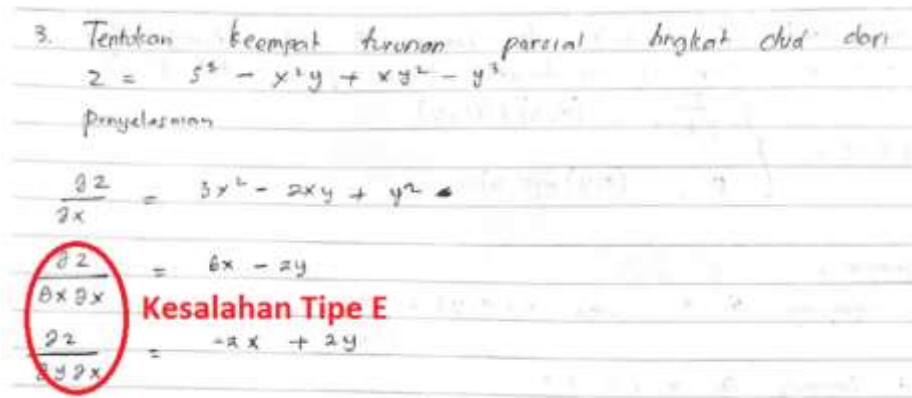 3. Tentukan keempat turunan parsial tingkat dua dari
z = 5³ - x²y + xy² - y³
penyelesaian
∂z/∂x = 3x² - 2xy + y²
∂z/∂x∂x = 6x - 2y
Kesalahan Tipe E
∂z/∂y∂x = -2x + 2y